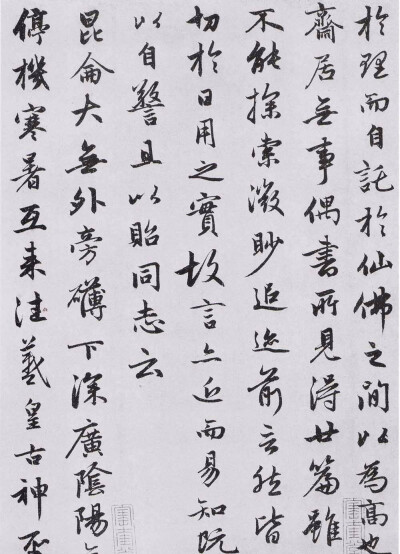 於理而自託於仙佛之間以為高也
齋居無事偶書所見得廿篇雖
不能探索微眇追迹前言然皆
切於日用之實故言亦近而易知既
以自警且以貽同志云
昆侖大無外旁礴下深廣陰陽無
停機寒暑互来往羲皇古神聖